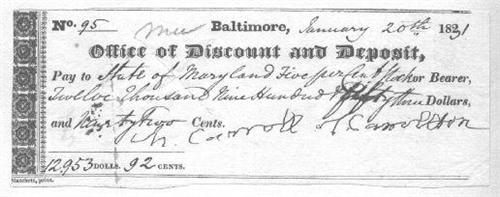 No. 95 Baltimore, January 20th 1831
Office of Discount and Deposit,
Pay to State of Maryland Five per Cent Stock or Bearer,
Twelve Thousand Nine Hundred & fifty three Dollars,
and Ninety Two Cents.
Ch. Carroll of Carrollton
12.953 DOLLS. 92 CENTS.